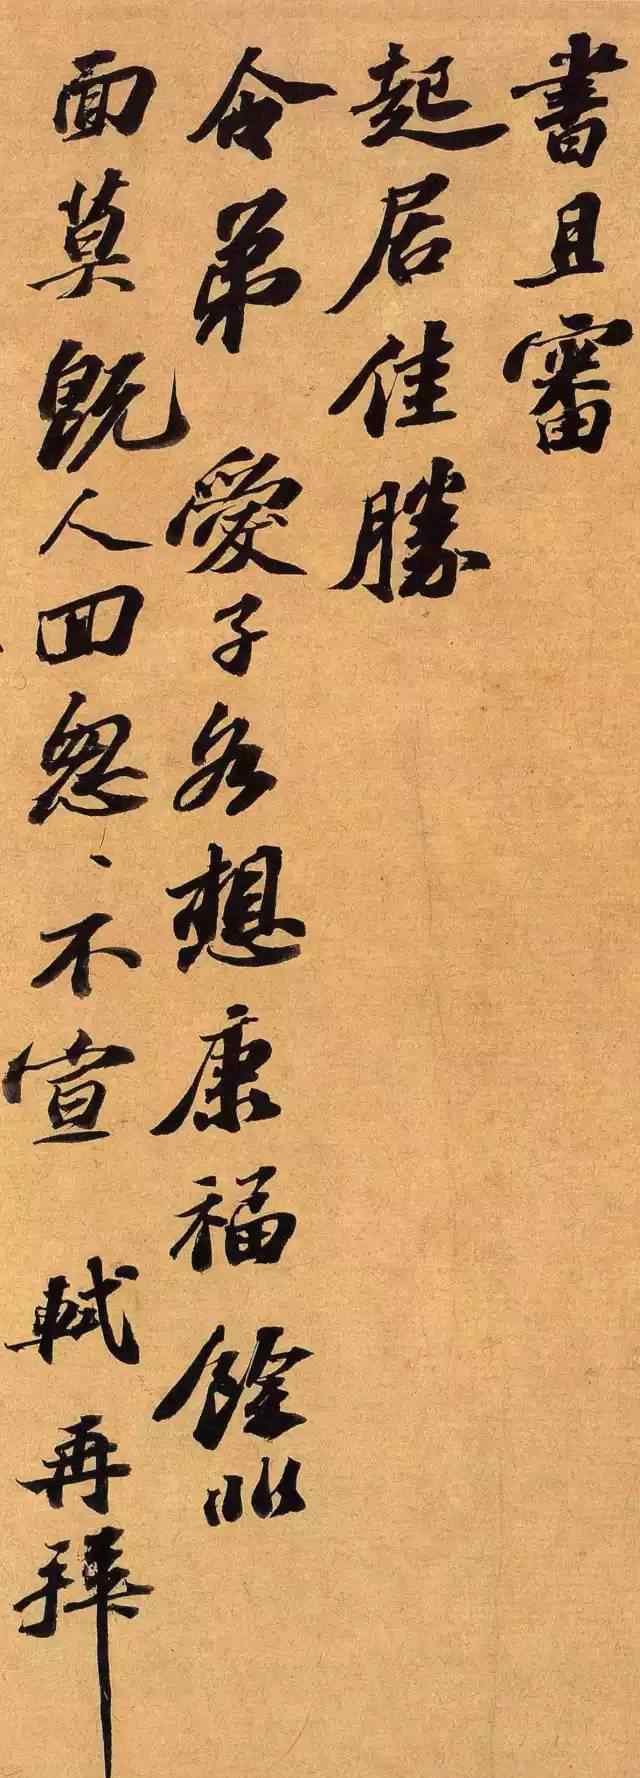 書且審
起居佳勝
令弟愛子各想康福餘非
面莫既人回怱、不宣軾再拜